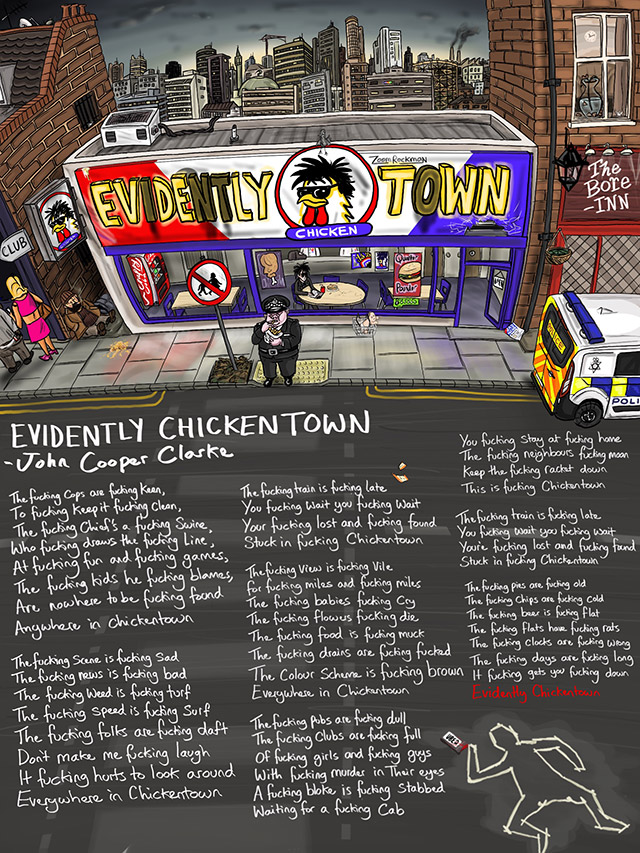 Zoom Rockman
EVIDENTLY TOWN
CHICKEN
CLUB
The
Bore
-INN
Quality
Powder
POLI
EVIDENTLY CHICKENTOWN
-John Cooper Clarke
The fucking Cops are fucking Keen,
To fucking Keep it fucking Clean,
The fucking Chief's a fucking Swine,
Who fucking draws the fucking Line,
At fucking fun and fucking games,
The fucking kids he fucking blames,
Are nowhere to be fucking found
Anywhere in chickentown
The fucking Scene is fucking Sad
The fucking news is fucking bad
The fucking Weed is fucking turf
The fucking Speed is fucking Surf
The fucking folks are fucking daft
Don't make me fucking laugh
It fucking hurts to look around
Everywhere in Chickentown
The fucking train is fucking late
You fucking Wait you fucking Wait
Your fucking lost and fucking found
Stuck in fucking Chickentown
The fucking View is fucking Vile
For fucking miles and fucking miles
The fucking babies fucking Cry
The fucking flowers fucking die
The fucking food is fucking muck
The fucking drains are fucking fucked
The Colour Scheme is fucking brown
Everywhere in Chickentown
The fucking Pubs are fucking dull
The fucking Clubs are fucking full
Of fucking girls and fucking guys
With fucking murder in Their eyes
A fucking bloke is fucking Stabbed
Waiting for a fucking Cab
You fucking Stay at fucking home
The fucking neighbours fucking moan
Keep the fucking racket down
This is fucking Chickentown
The fucking train is fucking late
You fucking Wait you fucking Wait
You're fucking lost and fucking found
Stuck in fucking Chickentown
The fucking pies are fucking old
The fucking chips are fucking Cold
The fucking beer is fucking flat
The fucking flats have fucking rats
The fucking clocks are fucking wrong
The fucking days are fucking long
It fucking gets you fucking down
Evidently Chickentown